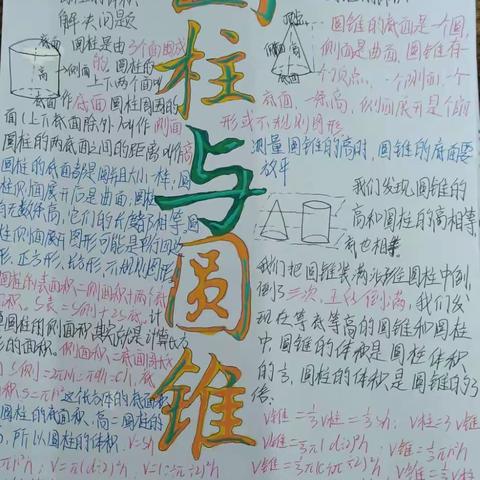 解决问题
底面
高
侧面
底面
圆柱是由3个面围成
的。圆柱的
上下两个面叫
作底面 圆柱周围的
面(上下底面除外)叫作侧面
圆柱的两底面之间的距离叫作高
圆柱的底面都是圆且大小一样,圆
柱侧面展开后是曲面,圆柱
有无数条高,它们的长度都相等。圆
柱侧面展开图形可能是平行四边
形,正方形,长方形,不规则图形
圆柱的表面积=侧面积+两个底
面积。S表=S侧+2S底。计
算圆柱的侧面积其实就是计算长方
形的面积。侧面积=底面周长
S侧=2πrh=πdh=Ch,底
面积S=πr²
圆柱的底面积,高=圆柱的
高,所以圆柱的体积V=Sh
V=πr²h;V=π(d÷2)²h;V=(c÷π÷2)²h
圆柱与圆锥
顶点
高
侧面
底面
圆锥的底面是一个圆,
侧面是曲面,圆锥有一
个顶点,一个侧面,一个
底面,一条高,侧面展开是个扇
形或不规则图形
测量圆锥的高时,圆锥的底面要
放平
我们发现圆锥的
高和圆柱的高相等,
底也相等。
我们把圆锥装满沙往圆柱中倒,
倒了三次,正好倒满,我们发
现在等底等高的圆锥和圆柱
中,圆锥的体积是圆柱体积
的⅓,圆柱的体积是圆锥的3
倍。
V锥=⅓V柱=⅓sh;V柱=3V锥
V锥=⅓π(d÷2)²h;V锥=⅓πr²h
V锥=⅓π(c÷π÷2)²h;V锥=⅓